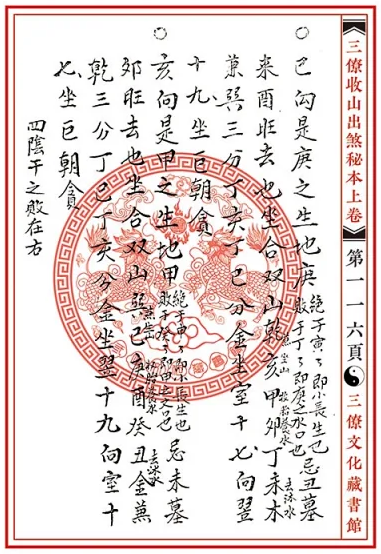 三僚收山出煞秘本上卷
第一一六頁
三僚文化藏書館
巳向是庚之生地庚
絕于寅〻即小長生也
敗于丁〻即庚之水口也
忌丑墓
來酉旺去也坐合双山乾亥甲卯丁未木
去沐水
兼巽三分丁亥丁巳分金坐室十七向翌
十九坐巨朝貪
亥向是甲之生地甲
絕于申〻即小長生也
敗于癸〻即甲之水口也
忌未墓
卯旺去也坐合双山巽巳庚酉癸丑金兼
去沐水
乾三分丁巳丁亥分金坐翌十九向室十
七坐巨朝貪
四陰干之敗在右